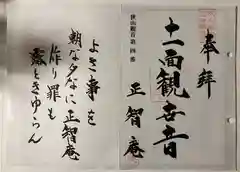 奉拝
十一面観世音
正智庵
狭山観音第四番
よき事を
朝な夕なに正智庵
作り罪も
露ときゆらん